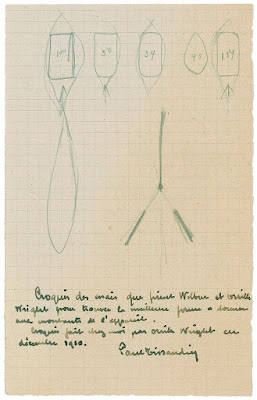 100 50 34 40 134
Croquis des essais que firent Wilbur et Orville
Wright pour trouver la meilleure forme a donner
aux montants de l'appareil.
Croquis fait chez moi par Orville Wright en
décembre 1910.
Paul Tissandier